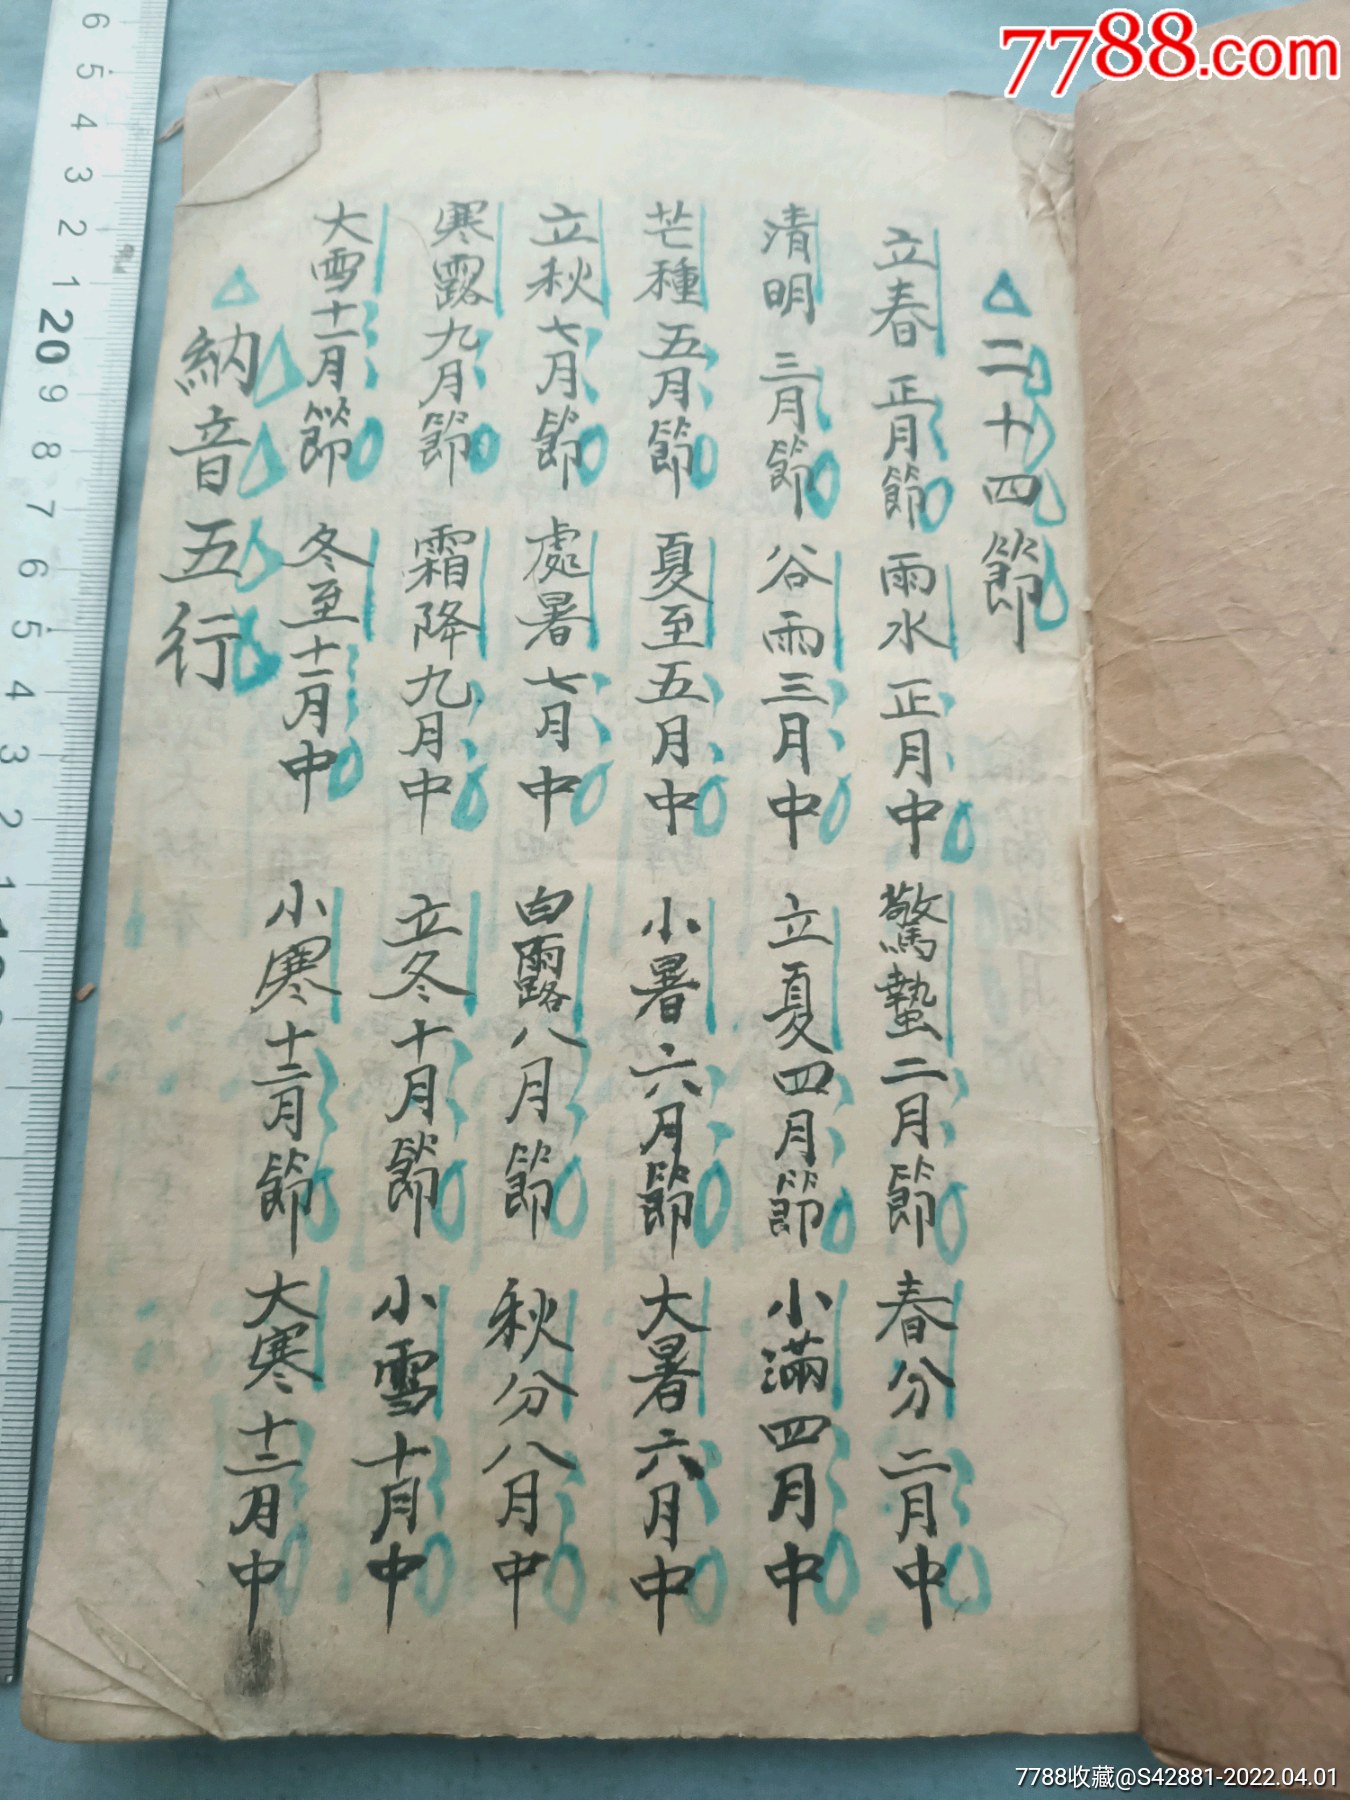 7788.com
二十四節
立春正月節 雨水正月中 驚蟄二月節 春分二月中
清明三月節 谷雨三月中 立夏四月節 小滿四月中
芒種五月節 夏至五月中 小暑六月節 大暑六月中
立秋七月節 處暑七月中 白露八月節 秋分八月中
寒露九月節 霜降九月中 立冬十月節 小雪十月中
大雪十一月節 冬至十一月中 小寒十二月節 大寒十二月中
納音五行
6 5 4 3 2 1 20 9 8 7 6 5 4 3 2 1
7788收藏@S42881-2022.04.01